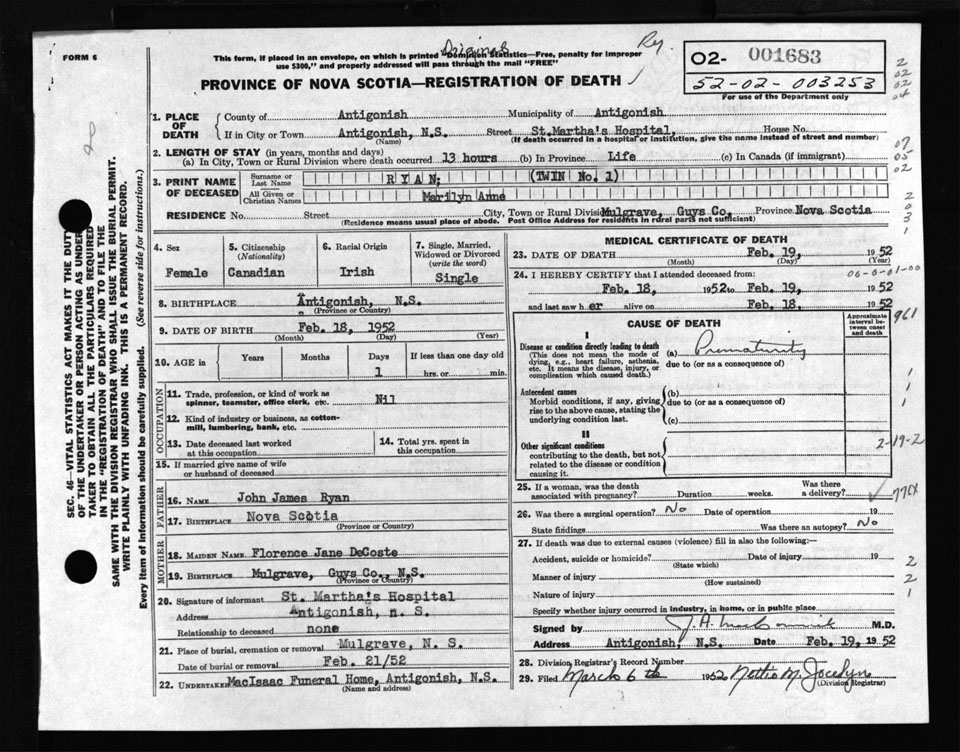 FORM 6
Original
Ry.
This form, if placed in an envelope, on which is printed "Dominion Statistics—Free, penalty for improper
use $300," and properly addressed will pass through the mail "FREE"
PROVINCE OF NOVA SCOTIA—REGISTRATION OF DEATH
02- 001683
52-02-003253
For use of the Department only
2
02
02
04
07
05
02
2
0
3
1
1. PLACE OF DEATH
County of Antigonish Municipality of Antigonish
If in City or Town Antigonish, N.S. Street St.Martha's Hospital, House No.
(Name) (If death occurred in a hospital or institution, give the name instead of street and number)
2. LENGTH OF STAY (in years, months and days)
(a) In City, Town or Rural Division where death occurred 13 hours (b) In Province Life (c) In Canada (if immigrant)
3. PRINT NAME OF DECEASED
Surname or Last Name RYAN; (TWIN No. 1)
All Given or Christian Names Marilyn Anne
RESIDENCE No. Street City, Town or Rural Division Mulgrave, Guys Co. Province Nova Scotia
(Residence means usual place of abode. Post Office Address for residents in rural parts not sufficient)
4. Sex
Female
5. Citizenship
(Nationality)
Canadian
6. Racial Origin
Irish
7. Single, Married,
Widowed or Divorced
(write the word)
Single
8. BIRTHPLACE Antigonish, N.S.
(Province or Country)
9. DATE OF BIRTH Feb. 18, 1952
(Month) (Day) (Year)
10. AGE in Years Months Days If less than one day old
1 hrs. or min.
OCCUPATION
11. Trade, profession, or kind of work as
spinner, teamster, office clerk, etc. Nil
12. Kind of industry or business, as cotton-
mill, lumbering, bank, etc.
13. Date deceased last worked
at this occupation
14. Total yrs. spent in
this occupation
15. If married give name of wife
or husband of deceased
FATHER
16. NAME John James Ryan
17. BIRTHPLACE Nova Scotia
(Province or Country)
MOTHER
18. MAIDEN NAME Florence Jane DeCoste
19. BIRTHPLACE Mulgrave, Guys Co., N.S.
(Province or Country)
20. Signature of informant St. Martha's Hospital
Address Antigonish, n. S.
Relationship to deceased none
21. Place of burial, cremation or removal Mulgrave, N. S.
Date of burial or removal Feb. 21/52
22. UNDERTAKER MacIsaac Funeral Home, Antigonish, N.S.
(Name and address)
MEDICAL CERTIFICATE OF DEATH
23. DATE OF DEATH Feb. 19, 1952
(Month) (Day) (Year)
24. I HEREBY CERTIFY that I attended deceased from: 06-0-01-00
Feb. 18, 1952 to Feb. 19, 1952
and last saw h er alive on Feb. 18, 1952
CAUSE OF DEATH
Approximate
interval be-
tween onset
and death
961
I
Disease or condition directly leading to death
(This does not mean the mode of
dying, e.g., heart failure, asthenia,
etc. It means the disease, injury, or
complication which caused death.)
(a) Prematurity
due to (or as a consequence of)
Antecedent causes
Morbid conditions, if any, giving
rise to the above cause, stating the
underlying condition last.
(b)
due to (or as a consequence of)
(c)
1
1
1
II
Other significant conditions
contributing to the death, but not
related to the disease or condition
causing it.
2-19-2
25. If a woman, was the death
associated with pregnancy? Duration weeks. Was there
a delivery?
26. Was there a surgical operation? No Date of operation 19
State findings Was there an autopsy? No
27. If death was due to external causes (violence) fill in also the following:—
Accident, suicide or homicide? Date of injury 19
(State which)
Manner of injury
(How sustained)
Nature of injury
Specify whether injury occurred in industry, in home, or in public place
2
2
1
Signed by M.D.
Address Antigonish, N.S. Date Feb. 19, 1952
28. Division Registrar's Record Number
29. Filed March 6th 1952 Nettie M. Jocelyn
(Division Registrar)
SEC. 46—VITAL STATISTICS ACT MAKES IT THE DUTY
OF THE UNDERTAKER OR PERSON ACTING AS UNDER-
TAKER TO OBTAIN ALL THE PARTICULARS REQUIRED
IN THE "REGISTRATION OF DEATH" AND TO FILE THE
SAME WITH THE DIVISION REGISTRAR WHO SHALL ISSUE THE BURIAL PERMIT.
WRITE PLAINLY WITH UNFADING INK. THIS IS A PERMANENT RECORD.
Every item of information should be carefully supplied. (See reverse side for instructions.)